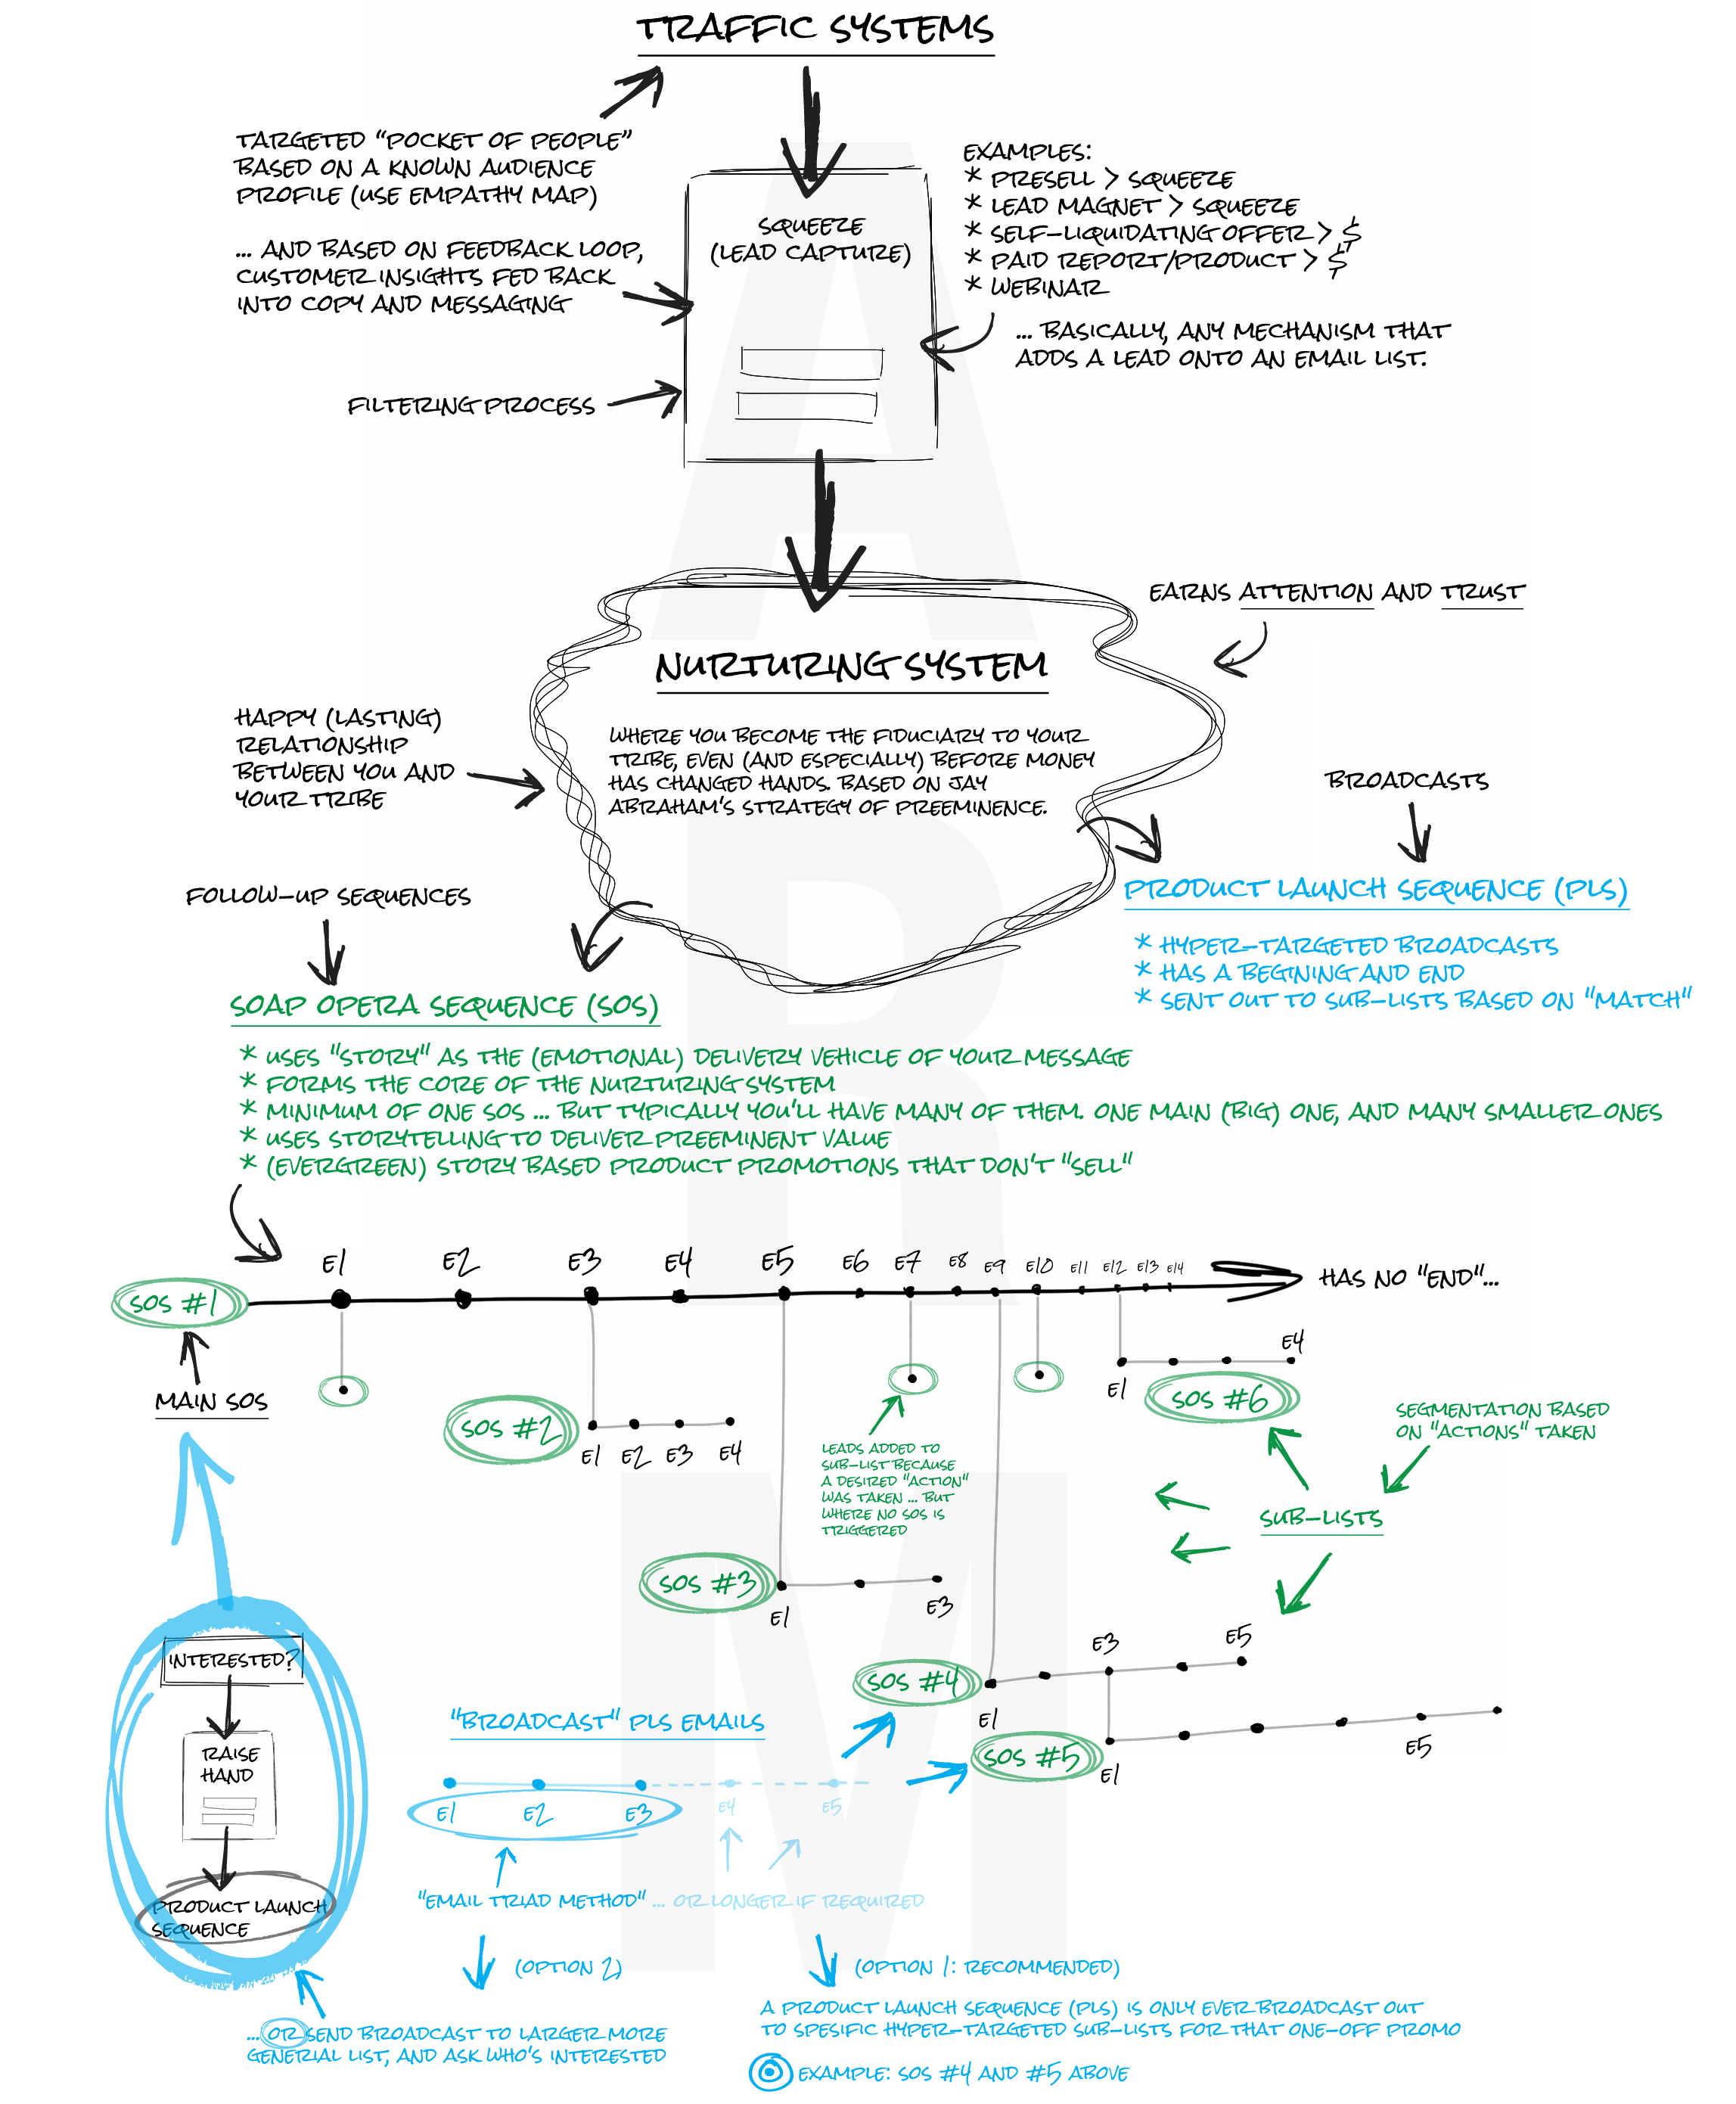 TRAFFIC SYSTEMS
TARGETED "POCKET OF PEOPLE"
BASED ON A KNOWN AUDIENCE
PROFILE (USE EMPATHY MAP)
... AND BASED ON FEEDBACK LOOP,
CUSTOMER INSIGHTS FED BACK
INTO COPY AND MESSAGING
FILTERING PROCESS
SQUEEZE
(LEAD CAPTURE)
EXAMPLES:
* PRESELL > SQUEEZE
* LEAD MAGNET > SQUEEZE
* SELF-LIQUIDATING OFFER > $
* PAID REPORT/PRODUCT > $
* WEBINAR
... BASICALLY, ANY MECHANISM THAT
ADDS A LEAD ONTO AN EMAIL LIST.
EARNS ATTENTION AND TRUST
NURTURING SYSTEM
WHERE YOU BECOME THE FIDUCIARY TO YOUR
TRIBE, EVEN (AND ESPECIALLY) BEFORE MONEY
HAS CHANGED HANDS. BASED ON JAY
ABRAHAM'S STRATEGY OF PREEMINENCE.
HAPPY (LASTING)
RELATIONSHIP
BETWEEN YOU AND
YOUR TRIBE
BROADCASTS
PRODUCT LAUNCH SEQUENCE (PLS)
* HYPER-TARGETED BROADCASTS
* HAS A BEGINING AND END
* SENT OUT TO SUB-LISTS BASED ON "MATCH"
FOLLOW-UP SEQUENCES
SOAP OPERA SEQUENCE (SOS)
* USES "STORY" AS THE (EMOTIONAL) DELIVERY VEHICLE OF YOUR MESSAGE
* FORMS THE CORE OF THE NURTURING SYSTEM
* MINIMUM OF ONE SOS ... BUT TYPICALLY YOU'LL HAVE MANY OF THEM. ONE MAIN (BIG) ONE, AND MANY SMALLER ONES
* USES STORYTELLING TO DELIVER PREEMINENT VALUE
* (EVERGREEN) STORY BASED PRODUCT PROMOTIONS THAT DON'T "SELL"
E1 E2 E3 E4 E5 E6 E7 E8 E9 E10 E11 E12 E13 E14
HAS NO "END"...
SOS #1
MAIN SOS
E4
E1
SOS #6
SOS #2
E1 E2 E3 E4
LEADS ADDED TO
SUB-LIST BECAUSE
A DESIRED "ACTION"
WAS TAKEN ... BUT
WHERE NO SOS IS
TRIGGERED
SEGMENTATION BASED
ON "ACTIONS" TAKEN
SUB-LISTS
SOS #3
E1
E3
SOS #4
E1
E3
E5
SOS #5
E1
E5
INTERESTED?
RAISE
HAND
PRODUCT LAUNCH
SEQUENCE
"BROADCAST" PLS EMAILS
E1 E2 E3 E4 E5
"EMAIL TRIAD METHOD" ... OR LONGER IF REQUIRED
(OPTION 2)
... OR SEND BROADCAST TO LARGER MORE
GENERIAL LIST, AND ASK WHO'S INTERESTED
(OPTION 1: RECOMMENDED)
A PRODUCT LAUNCH SEQUENCE (PLS) IS ONLY EVER BROADCAST OUT
TO SPESIFIC HYPER-TARGETED SUB-LISTS FOR THAT ONE-OFF PROMO
EXAMPLE: SOS #4 AND #5 ABOVE
A
R
M